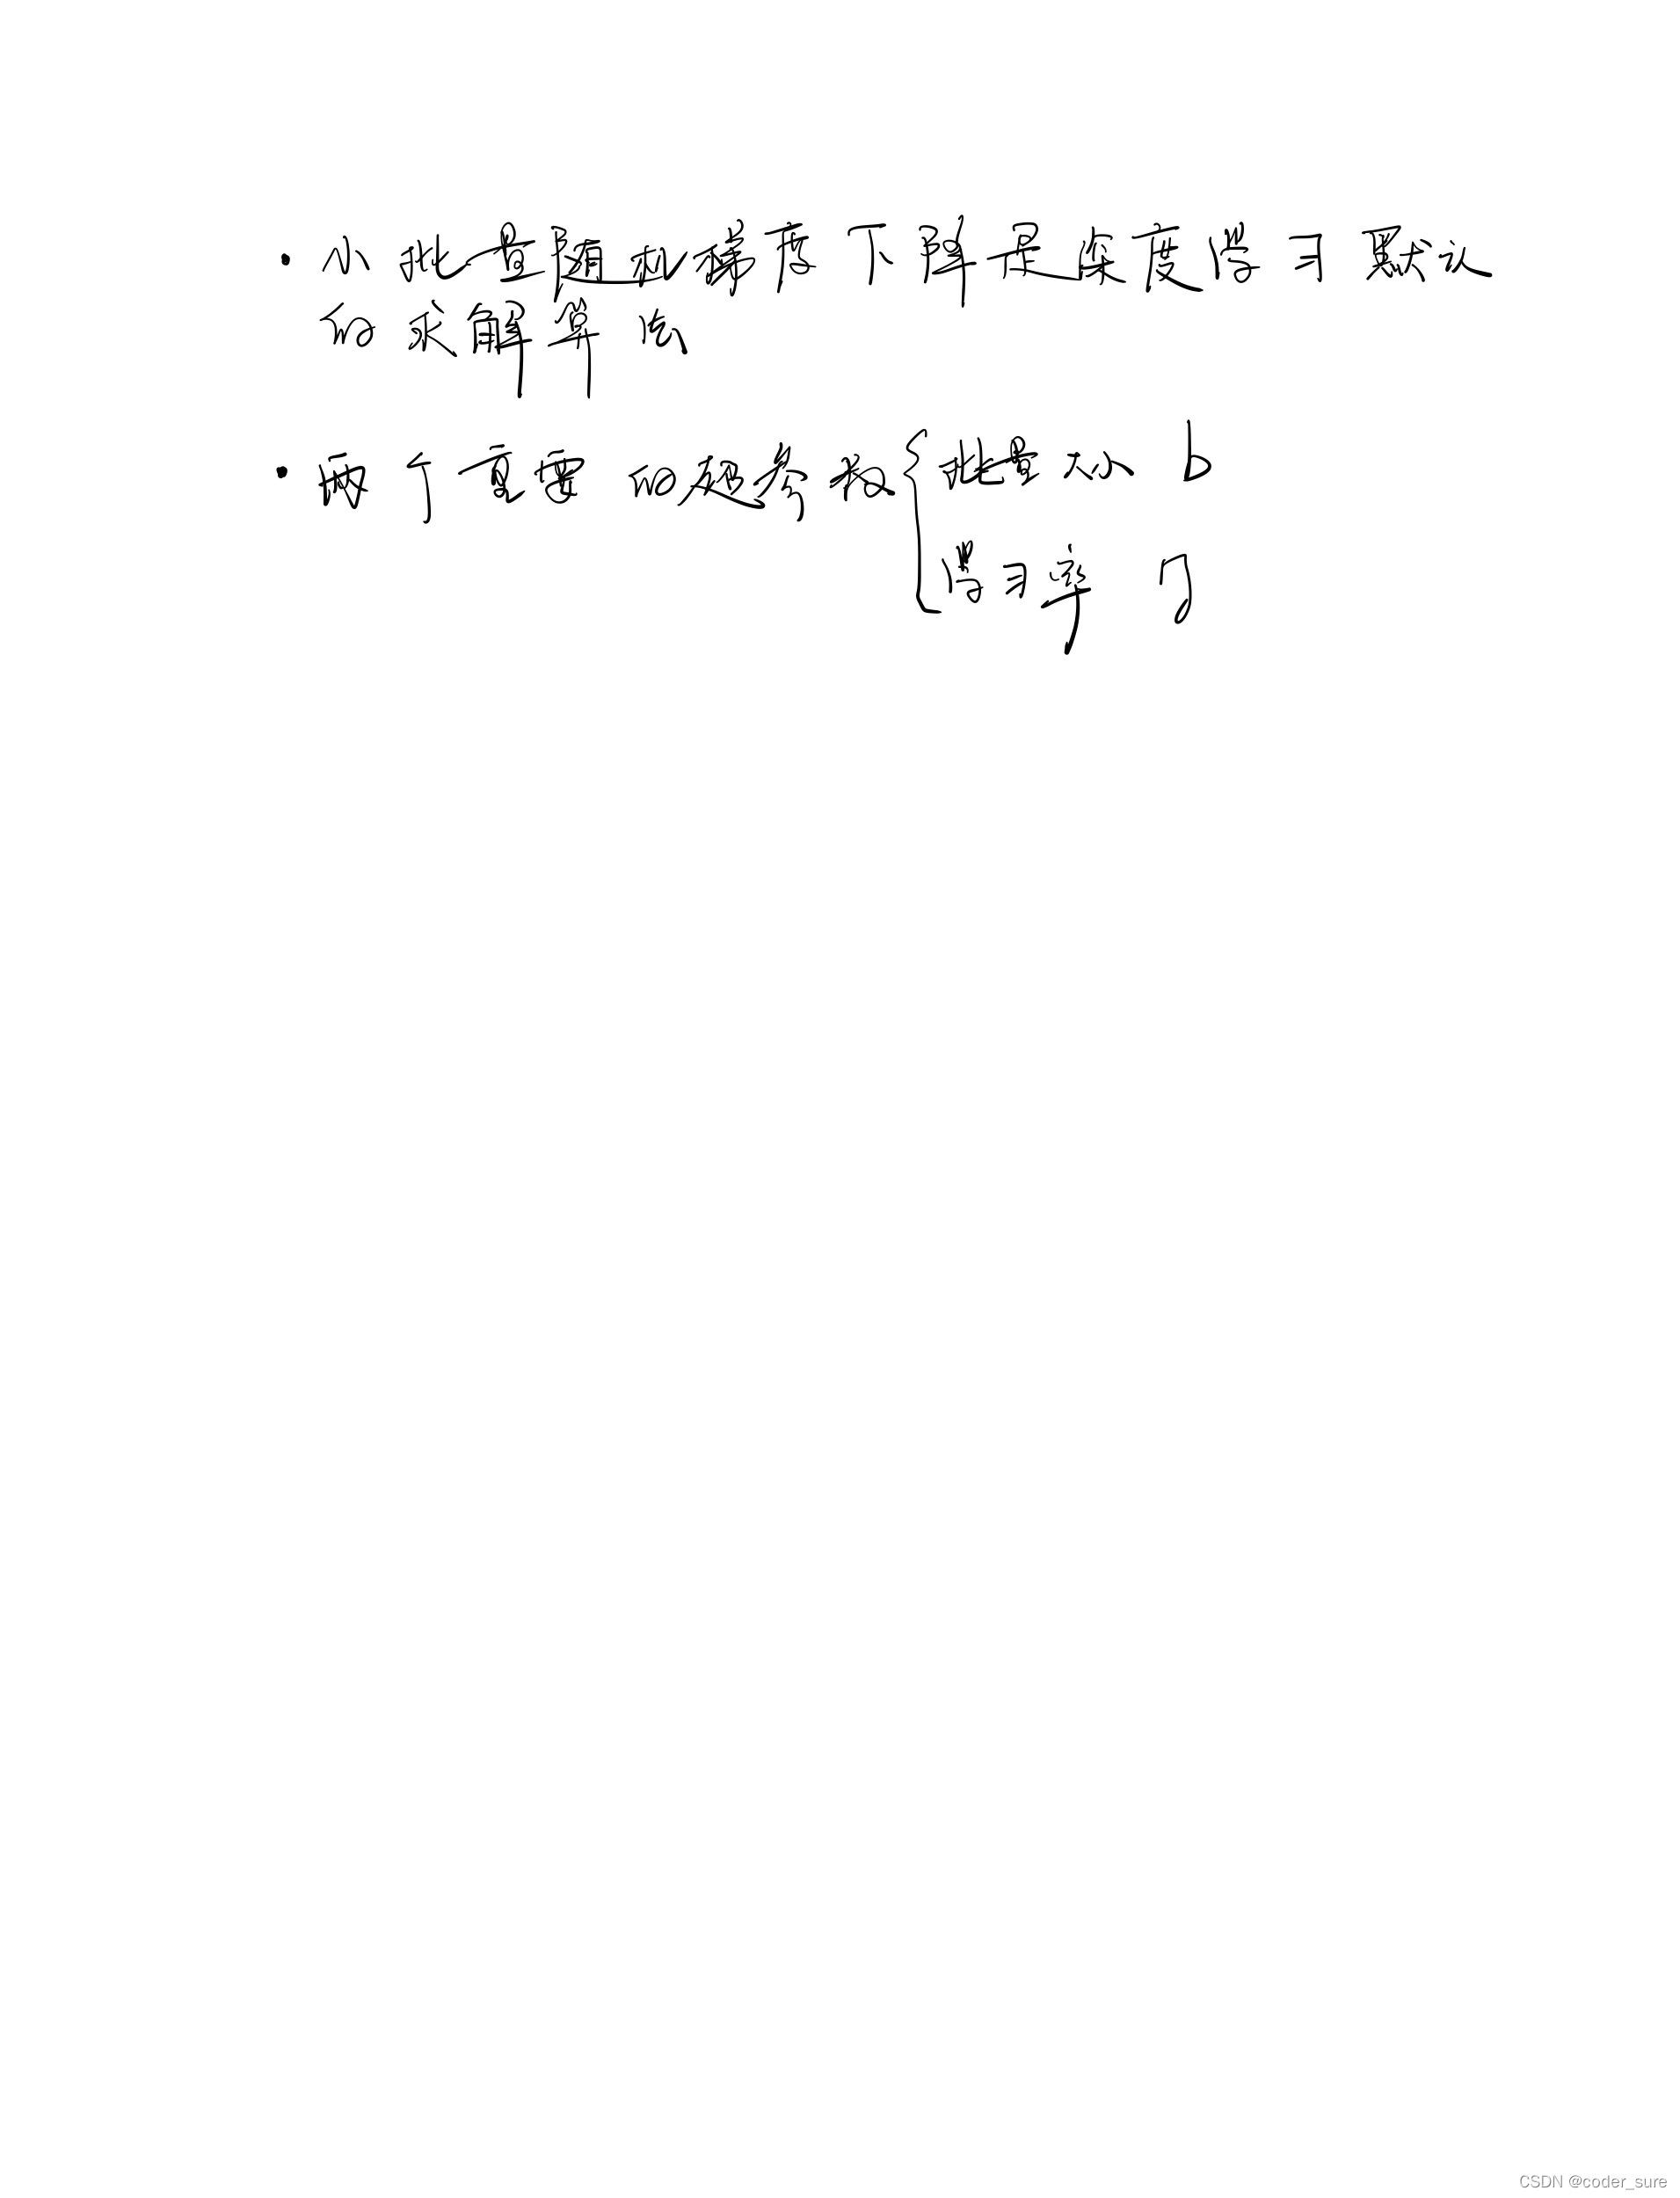 ·小批量随机梯度下降是深度学习默认
的求解算法
·两个重要的超参数 批量大小 b
学习率 η
CSDN @coder_sure